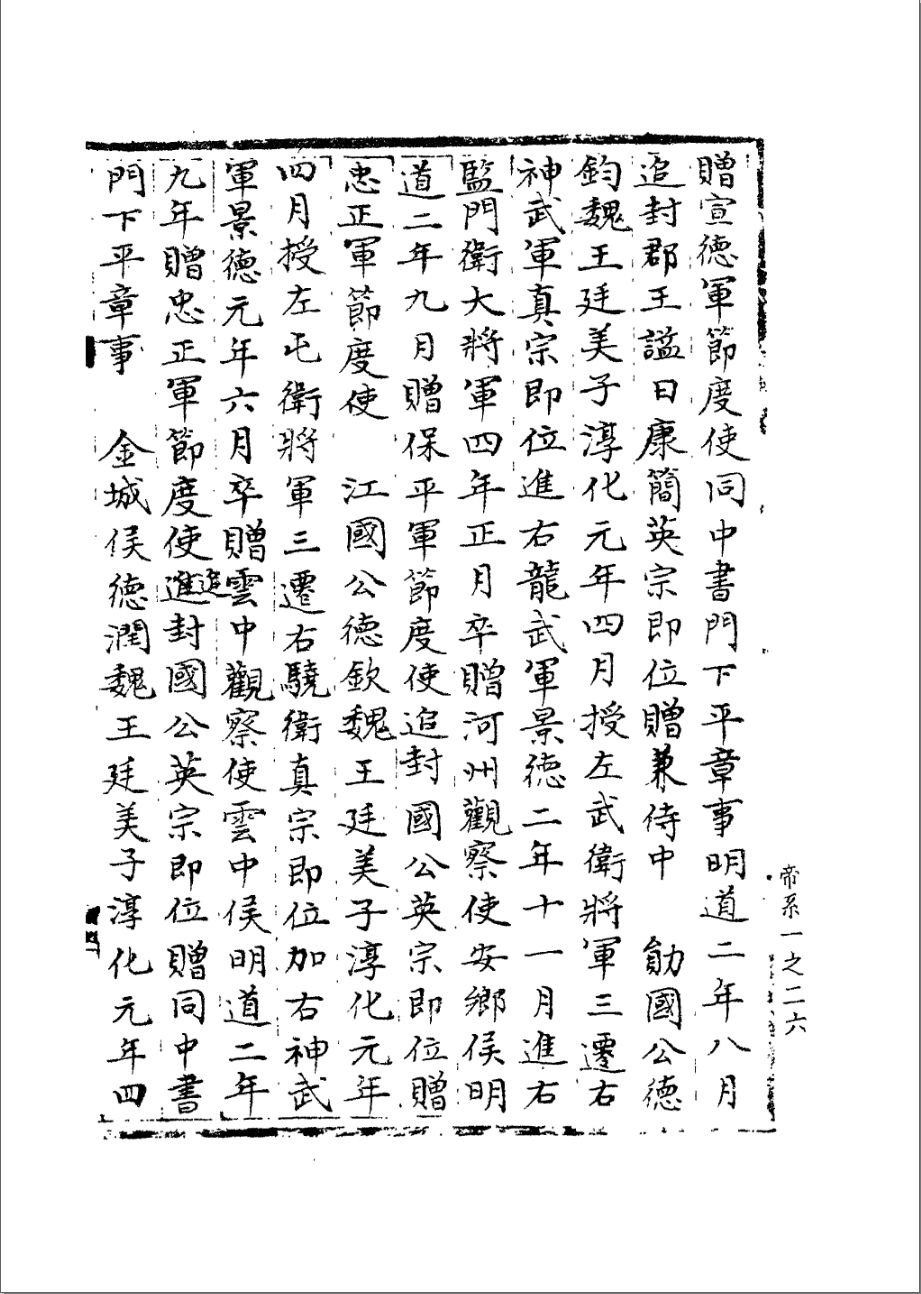 帝系一之二六
贈宣德軍節度使同中書門下平章事明道二年八月
追封郡王謚曰康簡英宗即位贈兼侍中　勛國公德
鈞魏王廷美子淳化元年四月授左武衛將軍三遷右
神武軍真宗即位進右龍武軍景德二年十一月進右
監門衛大將軍四年正月卒贈河州觀察使安鄉侯明
道二年九月贈保平軍節度使追封國公英宗即位贈
忠正軍節度使　江國公德欽魏王廷美子淳化元年
四月授左屯衛將軍三遷右驍衛真宗即位加右神武
軍景德元年六月卒贈雲中觀察使雲中侯明道二年
九年贈忠正軍節度使追進封國公英宗即位贈同中書
門下平章事　金城侯德潤魏王廷美子淳化元年四